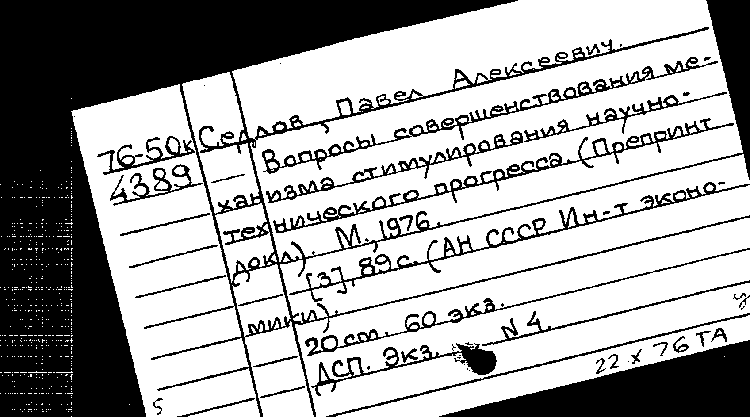 76-50к Седлов, Павел Алексеевич.
4389 Вопросы совершенствования ме-
ханизма стимулирования научно-
технического прогресса. (Препринт
докл.). М., 1976.
[3], 89 с. (АН СССР Ин-т эконо-
мики).
20 см. 60 экз.
ДСП. Экз. N 4.
22 X 76 ТА
у
5